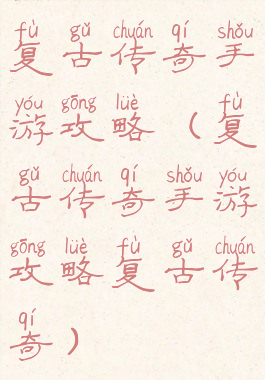 fù gǔ chuán qí shǒu
复古传奇手
yóu gōng lüè fù
游攻略（复
gǔ chuán qí shǒu yóu
古传奇手游
gōng lüè fù gǔ chuán
攻略复古传
qí
奇）